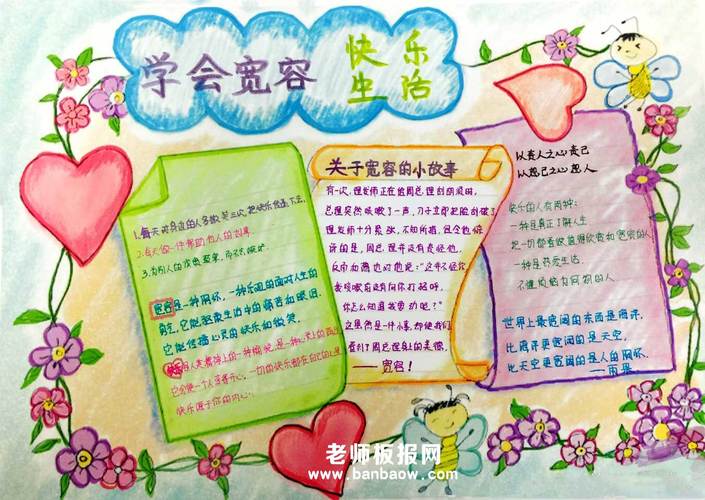 学会宽容 快乐
生活
1.每天对身边的人多微笑三次,把快乐传递下去,
2.每天做一件帮助他人的好事.
3.为别人的
宽容是一种胸怀,一种乐观的面对人生的
勇气,它能驱散生活中的痛苦和眼泪.
它能传播心灵的快乐和微笑.
快乐
它会使一个人笑得开心,一切的快乐都在自己的心里
快乐源于你的内心.
关于宽容的小故事
有一次,理发师正在给周总理刮胡须时,
总理突然咳嗽了一声,刀子立即把脸刮破了
理发师十分紧张,不知所措,但令他惊
讶的是,周总理并没有责怪他,
反而和蔼地对他说:"这并不怪你
我咳嗽前没有向你打招呼,
你怎么知道我要动呢?"
这虽然是一件小事,却使我们
看到了周总理身上的美德,
——宽容!
以责人之心责己
以恕己之心恕人
快乐的人有两种:
一种是真正了解人生
把一切都看做值得欣赏和宽恕的人
一种是热爱生活
不懂
世界上最宽阔的东西是海洋,
比海洋更宽阔的是天空,
比天空更宽阔的是人的胸怀.
——雨果
老师板报网
www.banbaow.com